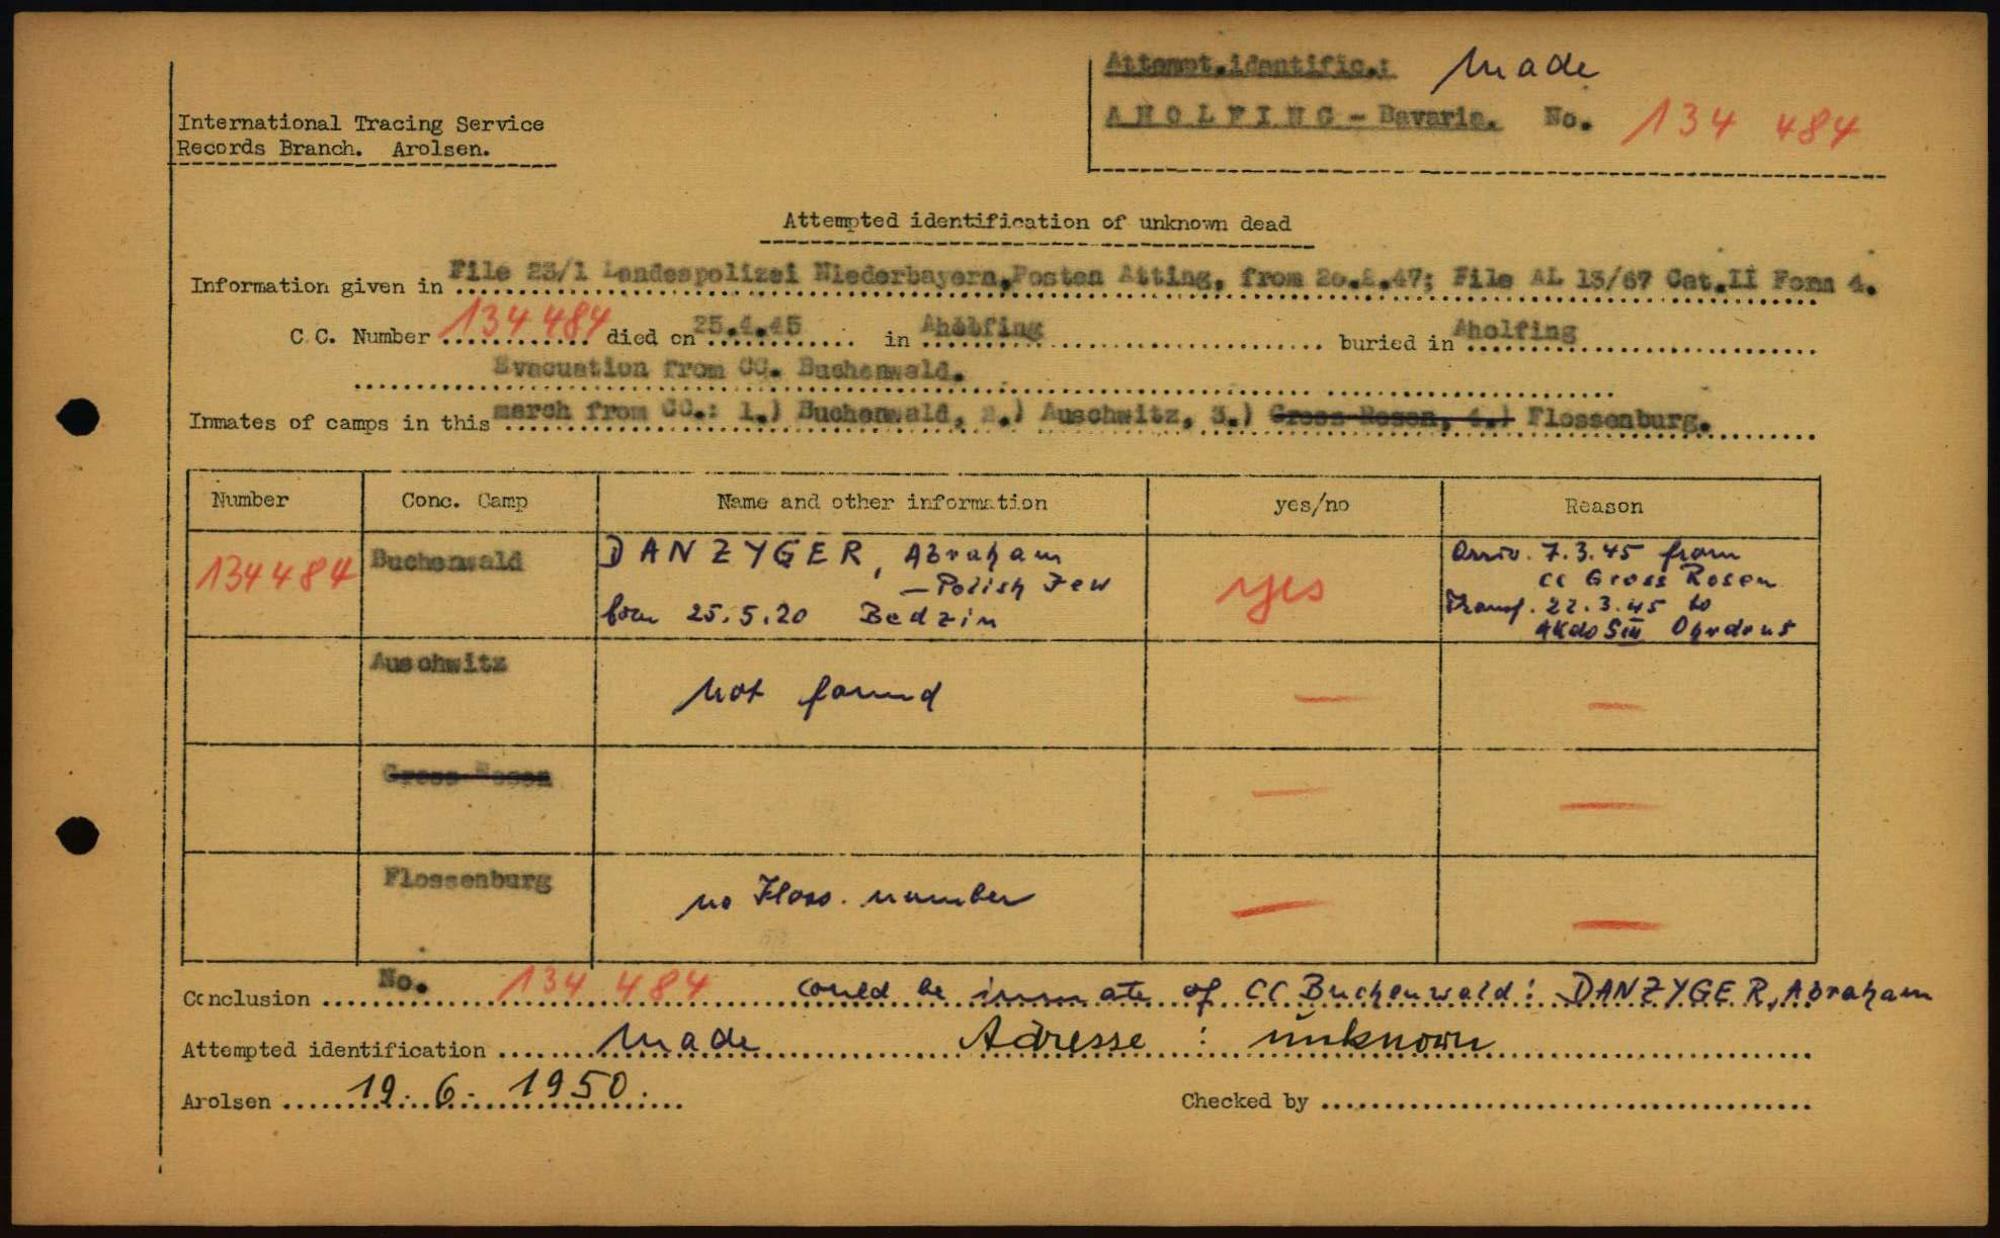 Attempt.identific.: Made
International Tracing Service
AHOLFING - Bavaria. No. 134 484
Records Branch. Arolsen.
Attempted identification of unknown dead
Information given in File 23/1 Landespolizei Niederbayern, Posten Atting, from 20.2.47; File AL 13/67 Cat.II Form 4.
C.C. Number 134 484 died on 25.4.45 in Aholfing buried in Aholfing
Evacuation from CC. Buchenwald.
Inmates of camps in this march from CC.: 1.) Buchenwald, 2.) Auschwitz, 3.) Gross Rosen, 4.) Flossenburg.
Number Conc. Camp Name and other information yes/no Reason
134484 Buchenwald DANZYGER, Abraham
— Polish Jew
born 25.5.20 Bedzin
yes
Arriv. 7.3.45 from
CC Gross Rosen
Transf. 22.3.45 to
AKdo SIII Ohrdruf
Auschwitz not found — —
Gross Rosen — —
Flossenburg no Floss. number — —
Conclusion No. 134 484 could be inmate of CC Buchenwald: DANZYGER, Abraham
Attempted identification Made Adresse : unknown
Arolsen 19. 6. 1950. Checked by